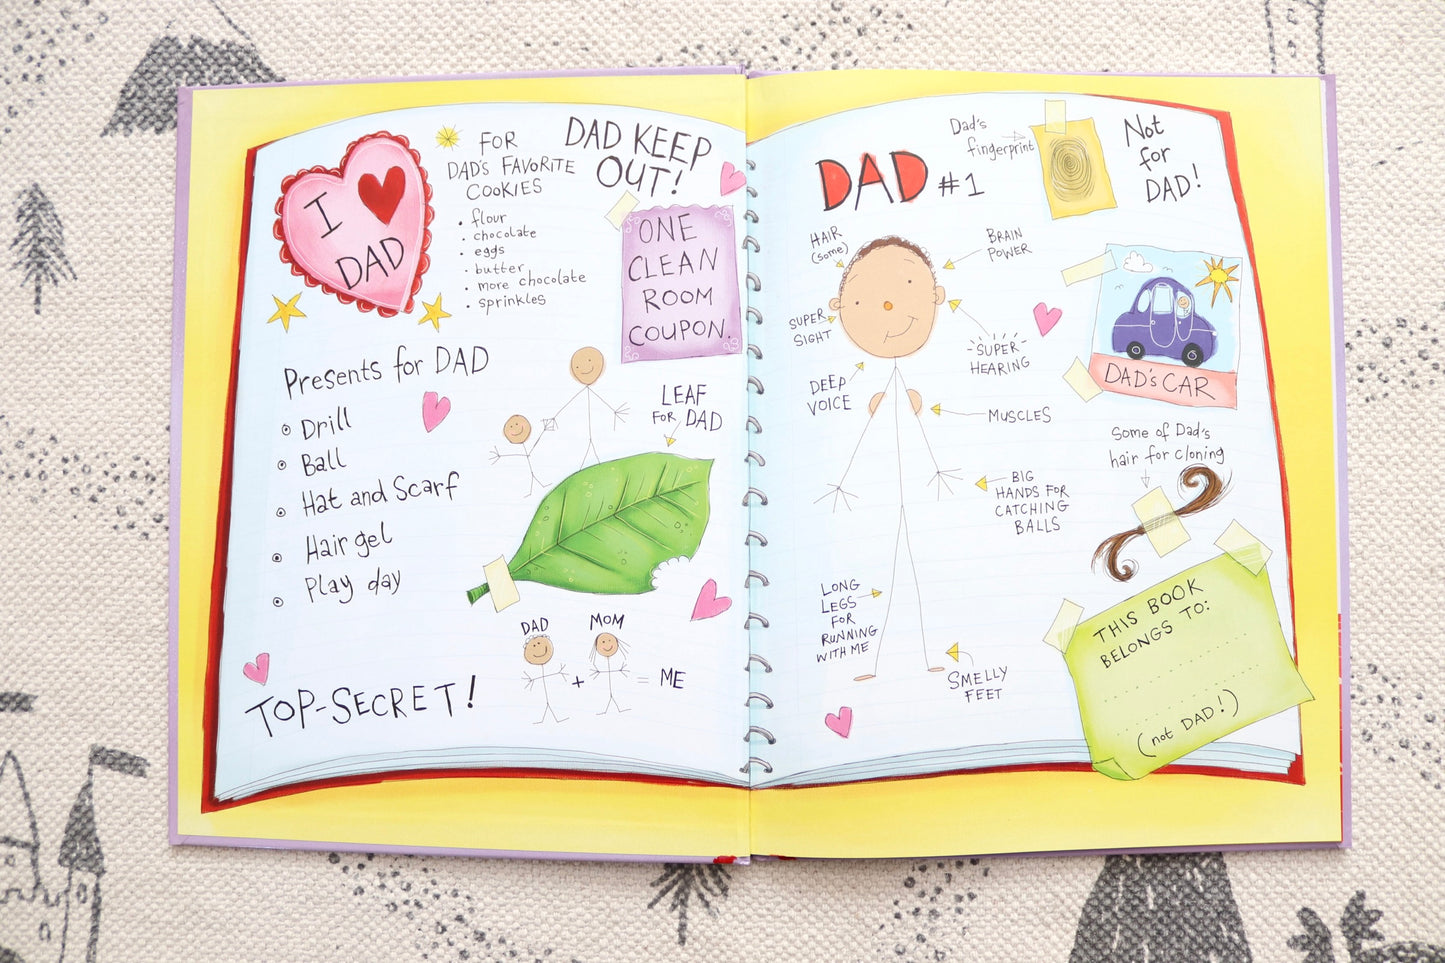 I
DAD
FOR
DAD's FAVORITE
COOKIES
• flour
• chocolate
• eggs
• butter
• more chocolate
• sprinkles
DAD KEEP
OUT!
ONE
CLEAN
ROOM
COUPON.
Presents for DAD
Drill
Ball
Hat and Scarf
Hair gel
Play day
LEAF
FOR DAD
DAD MOM
+ = ME
TOP-SECRET!
DAD #1
Dad's
fingerprint
Not
for
DAD!
HAIR
(some)
BRAIN
POWER
SUPER
SIGHT
SUPER
HEARING
DEEP
VOICE
MUSCLES
BIG
HANDS FOR
CATCHING
BALLS
LONG
LEGS
FOR
RUNNING
WITH ME
SMELLY
FEET
DAD'S CAR
Some of Dad's
hair for cloning
THIS BOOK
BELONGS TO:
(not DAD!)